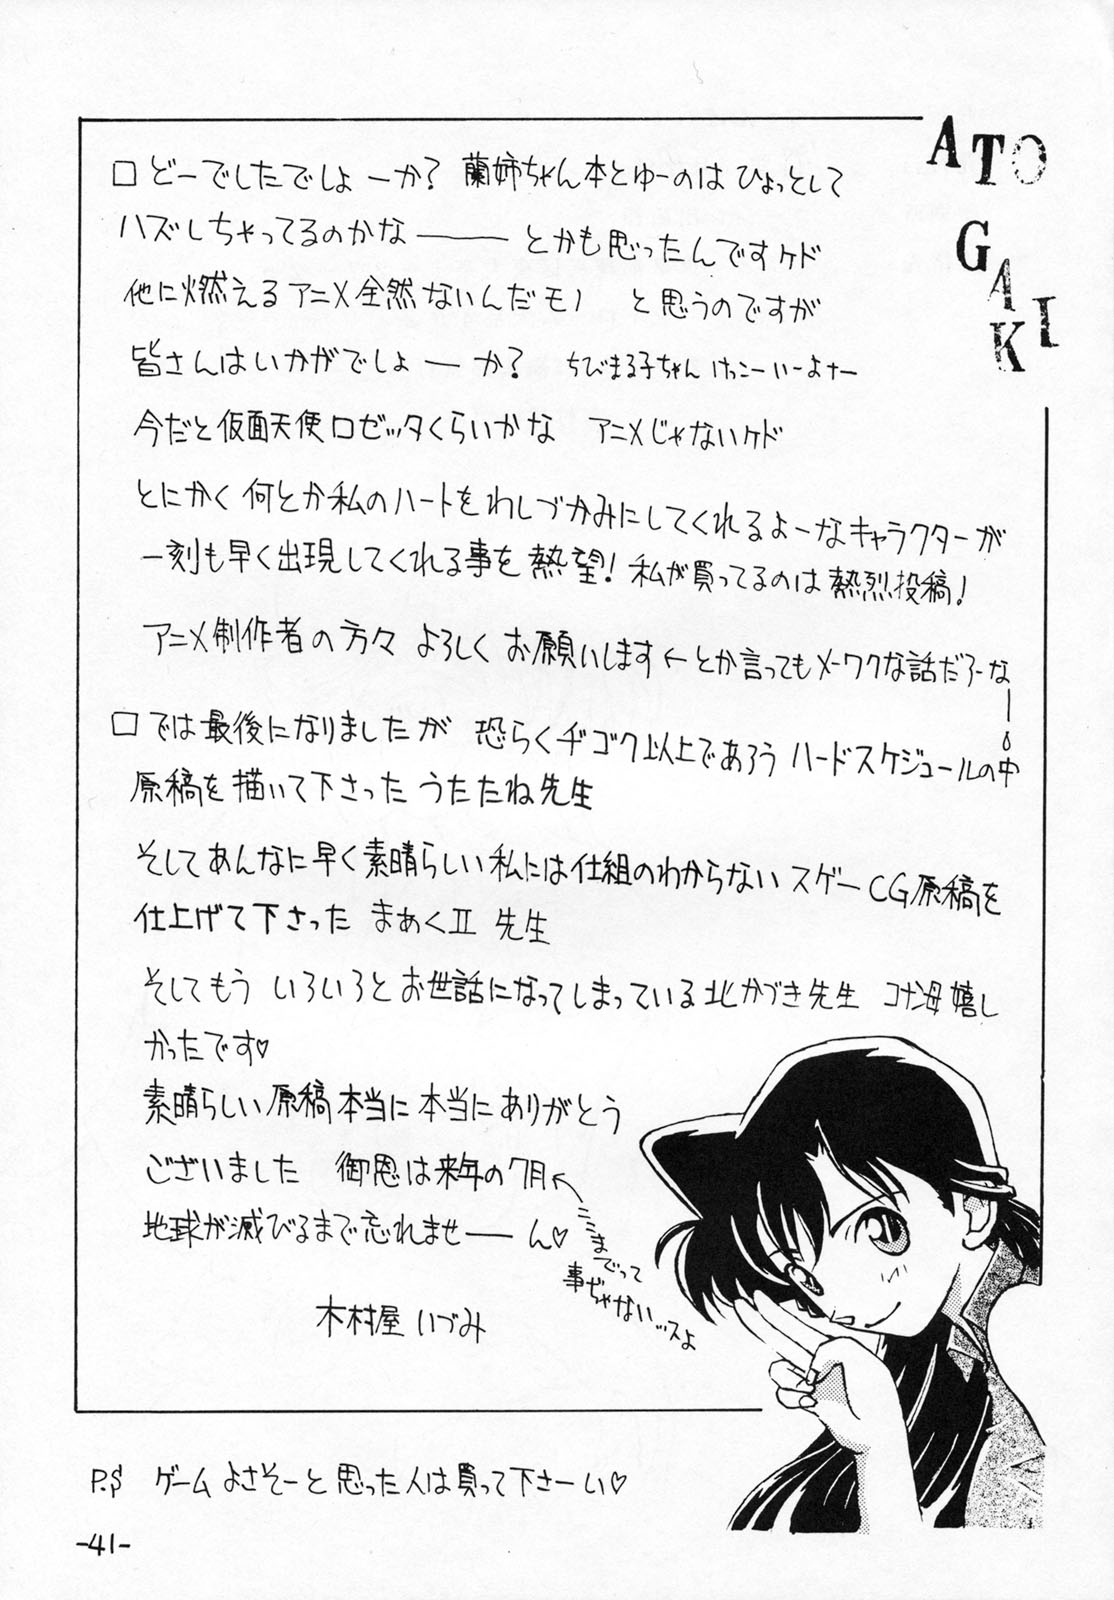 ATO
GAKI
□どーでしたでしょーか? 蘭姉ちゃん本とゆーのは ひょっとして
ハズしちゃってるのかな―― とかも思ったんですケド
他に燃えるアニメ全然ないんだモノ と思うのですが
皆さんはいかがでしょーか? ちびまる子ちゃん けっこーいーよナー
今だと仮面天使ロゼッタくらいかな アニメじゃないケド
とにかく何とか私のハートをわしづかみにしてくれるよーなキャラクターが
一刻も早く出現してくれる事を熱望! 私が買ってるのは熱烈投稿!
アニメ制作者の方々 よろしく お願いします←とか言ってもメーワクな話だろーなー
□では最後になりましたが 恐らくヂゴク以上であろう ハードスケジュールの中
原稿を描いて下さった うたたね先生
そしてあんなに早く素晴らしい私には仕組のわからないスゲーCG原稿を
仕上げて下さった まあくII 先生
そしてもう いろいろとお世話になってしまっている北かづき先生 コナン母嬉し
かったです♡
素晴らしい原稿本当に本当にありがとう
ございました 御恩は来年の7月←ここまでって
事ぢゃないッスよ
地球が滅びるまで忘れませ――ん♡
木村屋 いづみ
P.S ゲームよさそーと思った人は買って下さーい♡
-41-